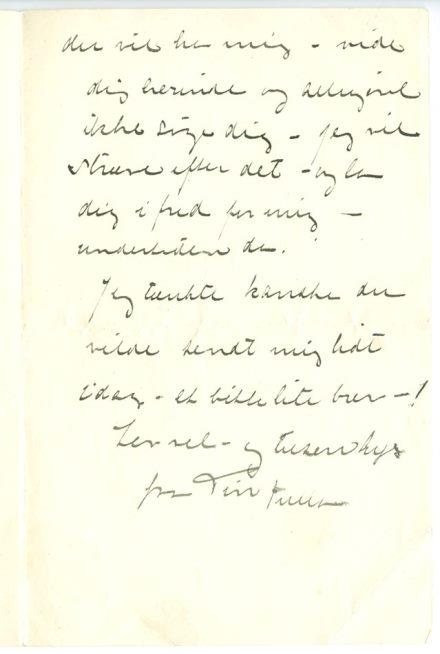 du vil ha mig – vide
dig herinde og alligevel
ikke søge dig – jeg vil
stræve efter det – og la
dig i fred for mig –
undertiden da.
Jeg tænkte kanske du
vilde sendt mig lidt
idag – et bitte lite brev –!
Lev vel – og tusen kys
fra Din Tulla